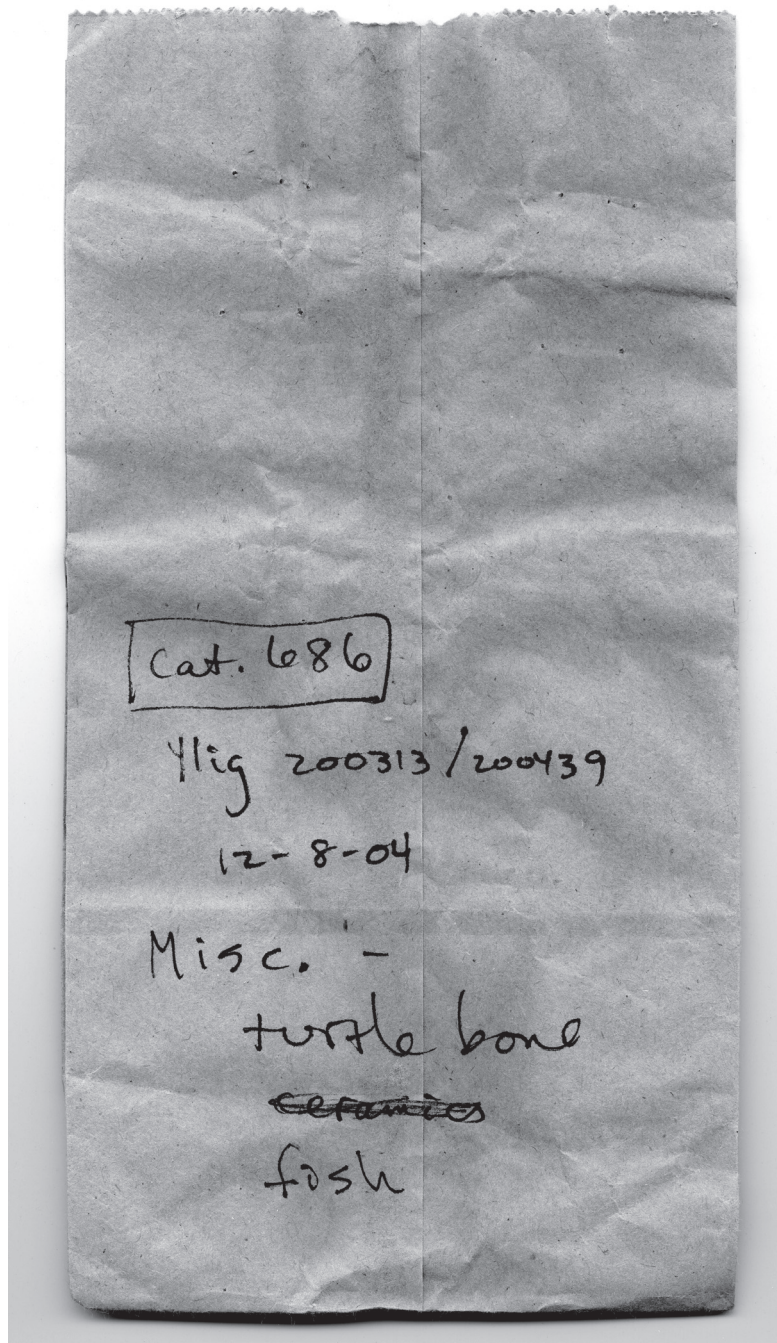 Cat. 686
Ylig 200313/200439
12-8-04
Misc. -
turtle bone
ceramics
fish